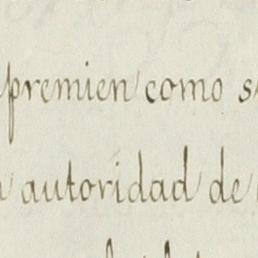 premien como
autoridad de